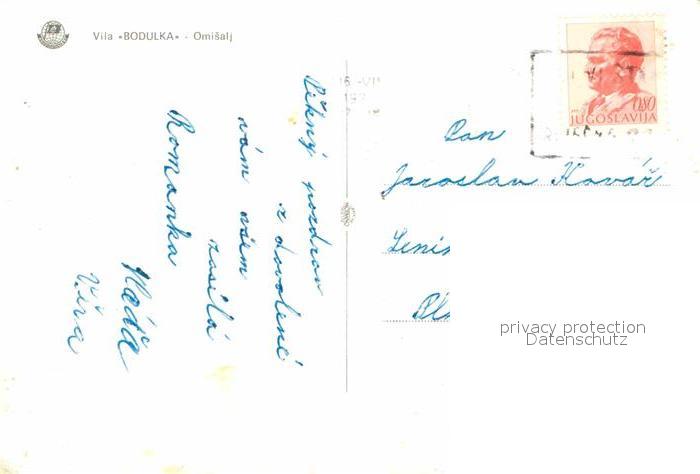 Vila «BODULKA» - Omišalj
Pěkný pozdrav
z dovolené
vám všem
zasílá
Romanka
Vláďa
Věra
0,80
JUGOSLAVIJA
Pan
Jaroslav Kovář
privacy protection
Datenschutz